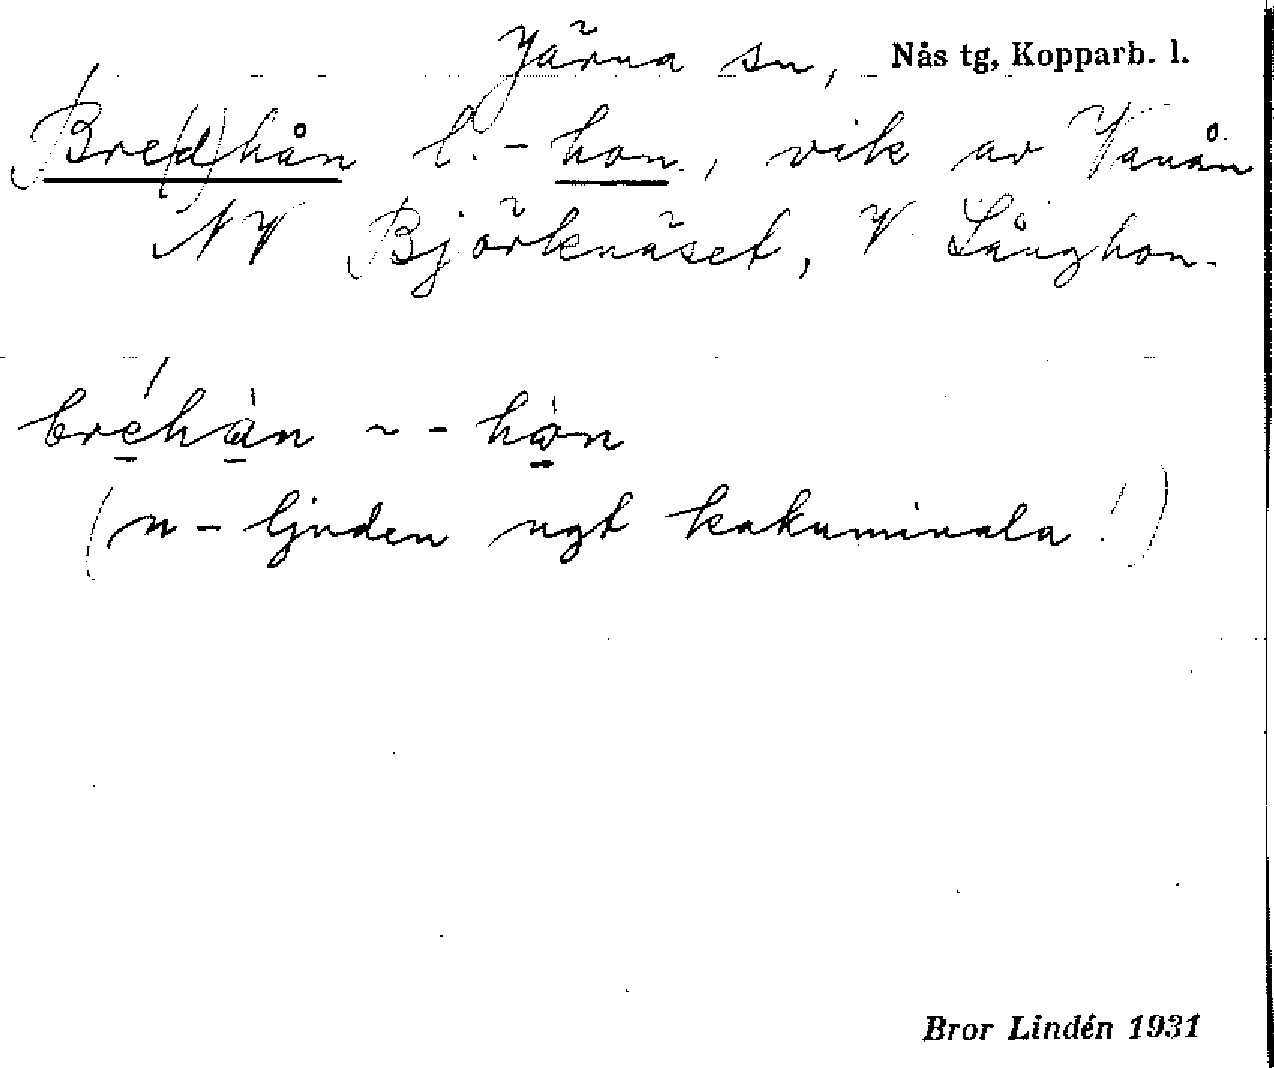 Järna sn, Nås tg, Kopparb. l.
Bre(d)hån l. -hon, vik av Vanån
NV Björknäset, V Långhon.
bréhàn ~ -hòn
(n-ljuden ngt kakuminala!)
Bror Lindén 1931